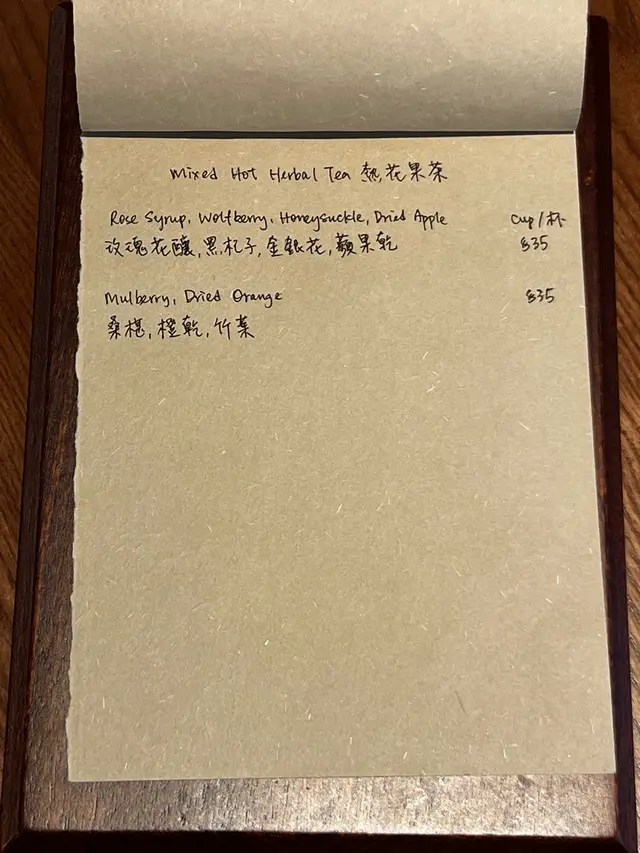 Mixed Hot Herbal Tea 熱花果茶
Rose Syrup, Wolfberry, Honeysuckle, Dried Apple Cup/杯
玫瑰花釀,黑杞子,金銀花,蘋果乾 $35
Mulberry, Dried Orange $35
桑椹,橙乾,竹葉